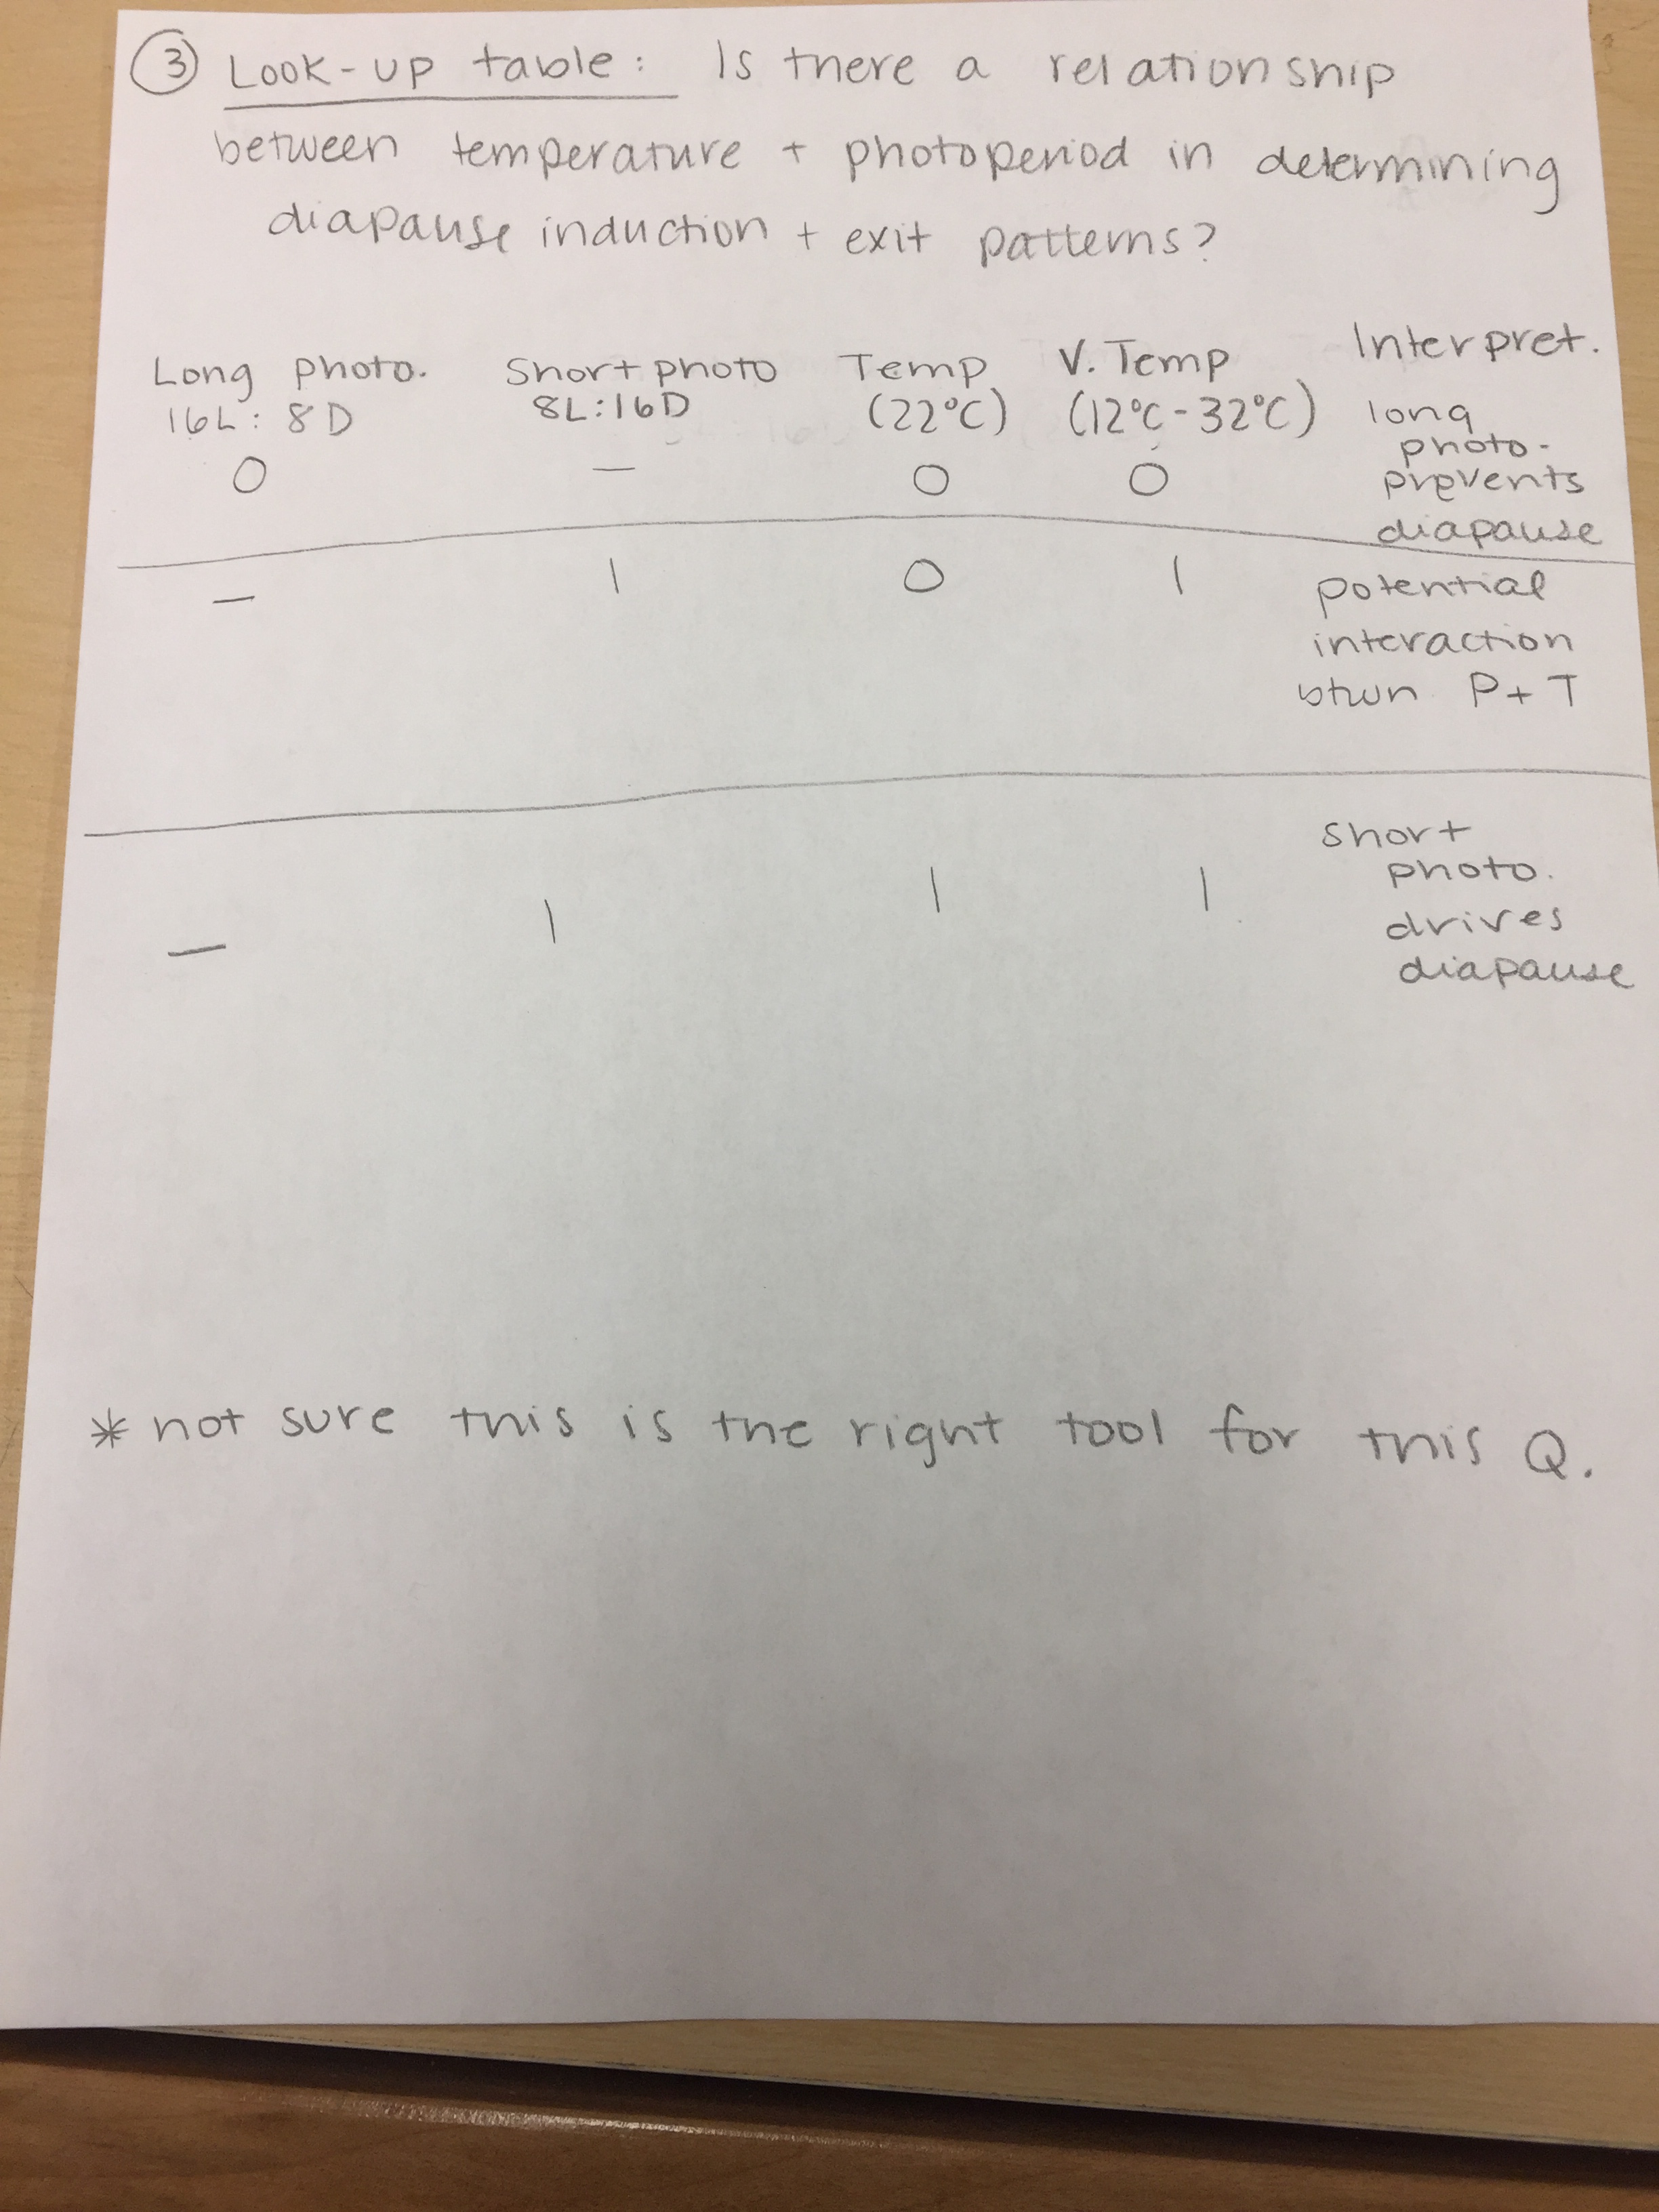 ③ Look-up table: Is there a relationship
between temperature + photoperiod in determining
diapause induction + exit patterns?
Long photo. Short photo Temp V. Temp Interpret.
16L: 8D 8L:16D (22°C) (12°C-32°C) long
photo-
O — O O prevents
diapause
— 1 O 1 potential
interaction
btwn P+T
short
photo.
— 1 1 1 drives
diapause
* not sure this is the right tool for this Q.